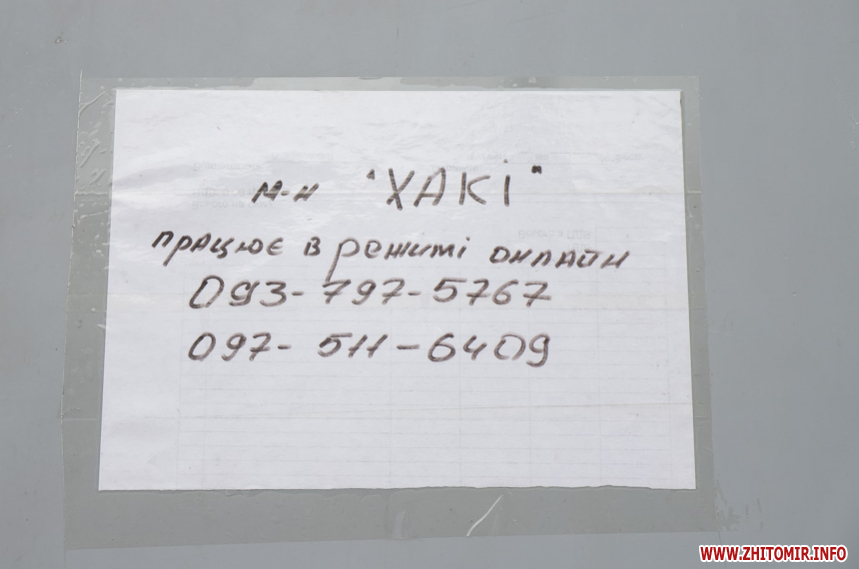 м-н "ХАКІ"
працює в режимі онлайн
093-797-5767
097-511-6409
WWW.ZHITOMIR.INFO